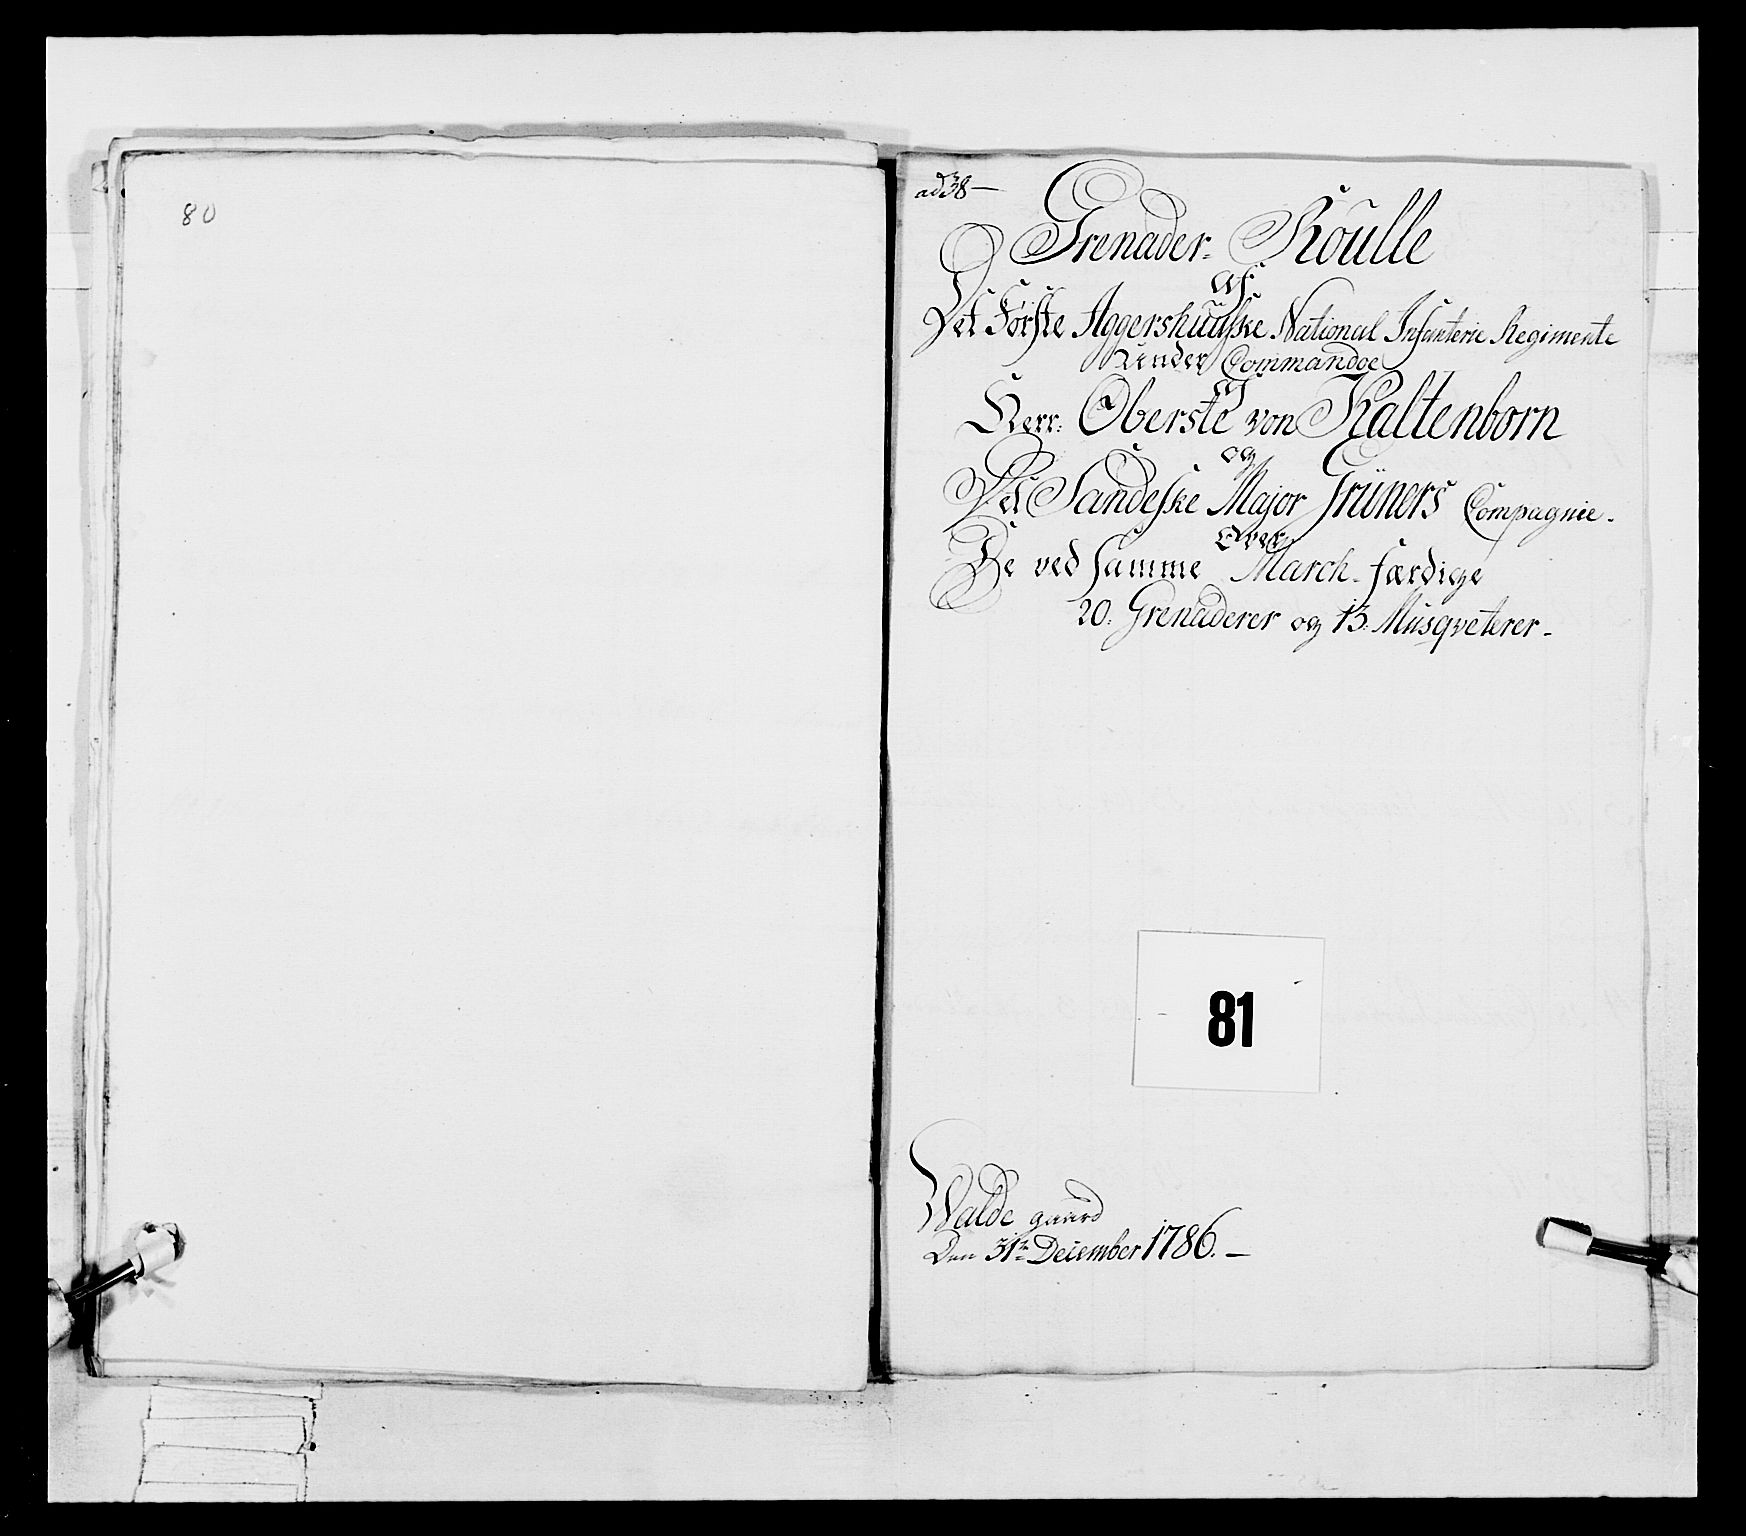 80
ad 38 —
Grenader- Roulle
af
Det Første Aggershuusske National Infanterie Regimente
Under Commandoe
af
Herr: Oberste von Kaltenborn
og
Det Sandeske Major Grüners Compagnie.
Over
De ved samme March-færdige
20. Grenaderer og 13. Musqveterer.
81
Walde gaard
Den 31te December 1786. —